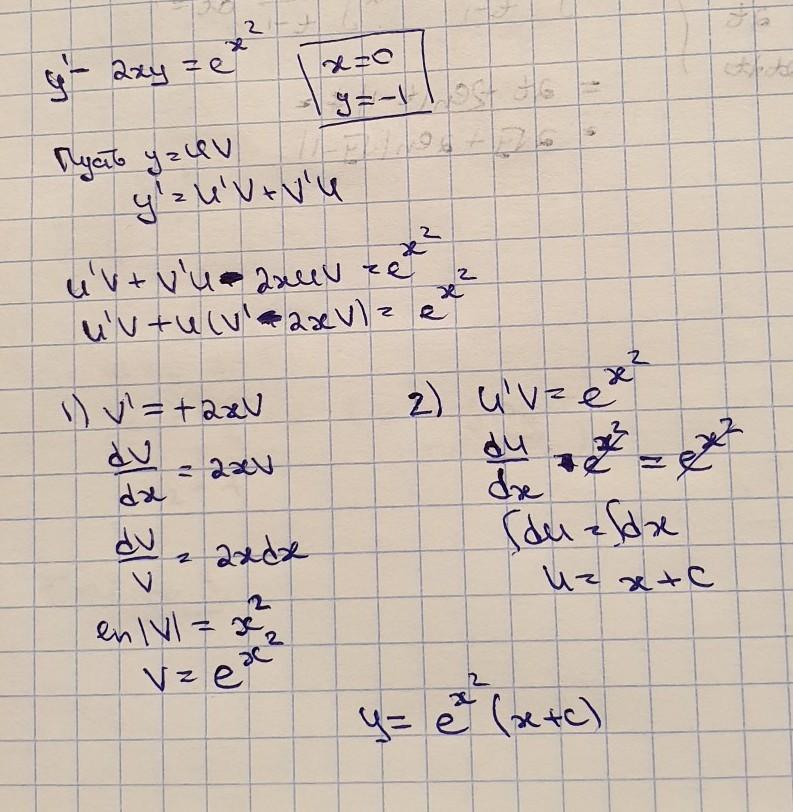 y' - 2xy = e^{x^2}
x=0
y=-1
Пусть y=uv
y'=u'v+v'u
u'v + v'u - 2xuv = e^{x^2}
u'v + u(v' - 2xv) = e^{x^2}
1) v' = +2xv
dv/dx = 2xv
dv/v = 2xdx
ln|v| = x^2
v = e^{x^2}
2) u'v = e^{x^2}
du/dx · e^{x^2} = e^{x^2}
∫du = ∫dx
u = x + c
y = e^{x^2} (x+c)